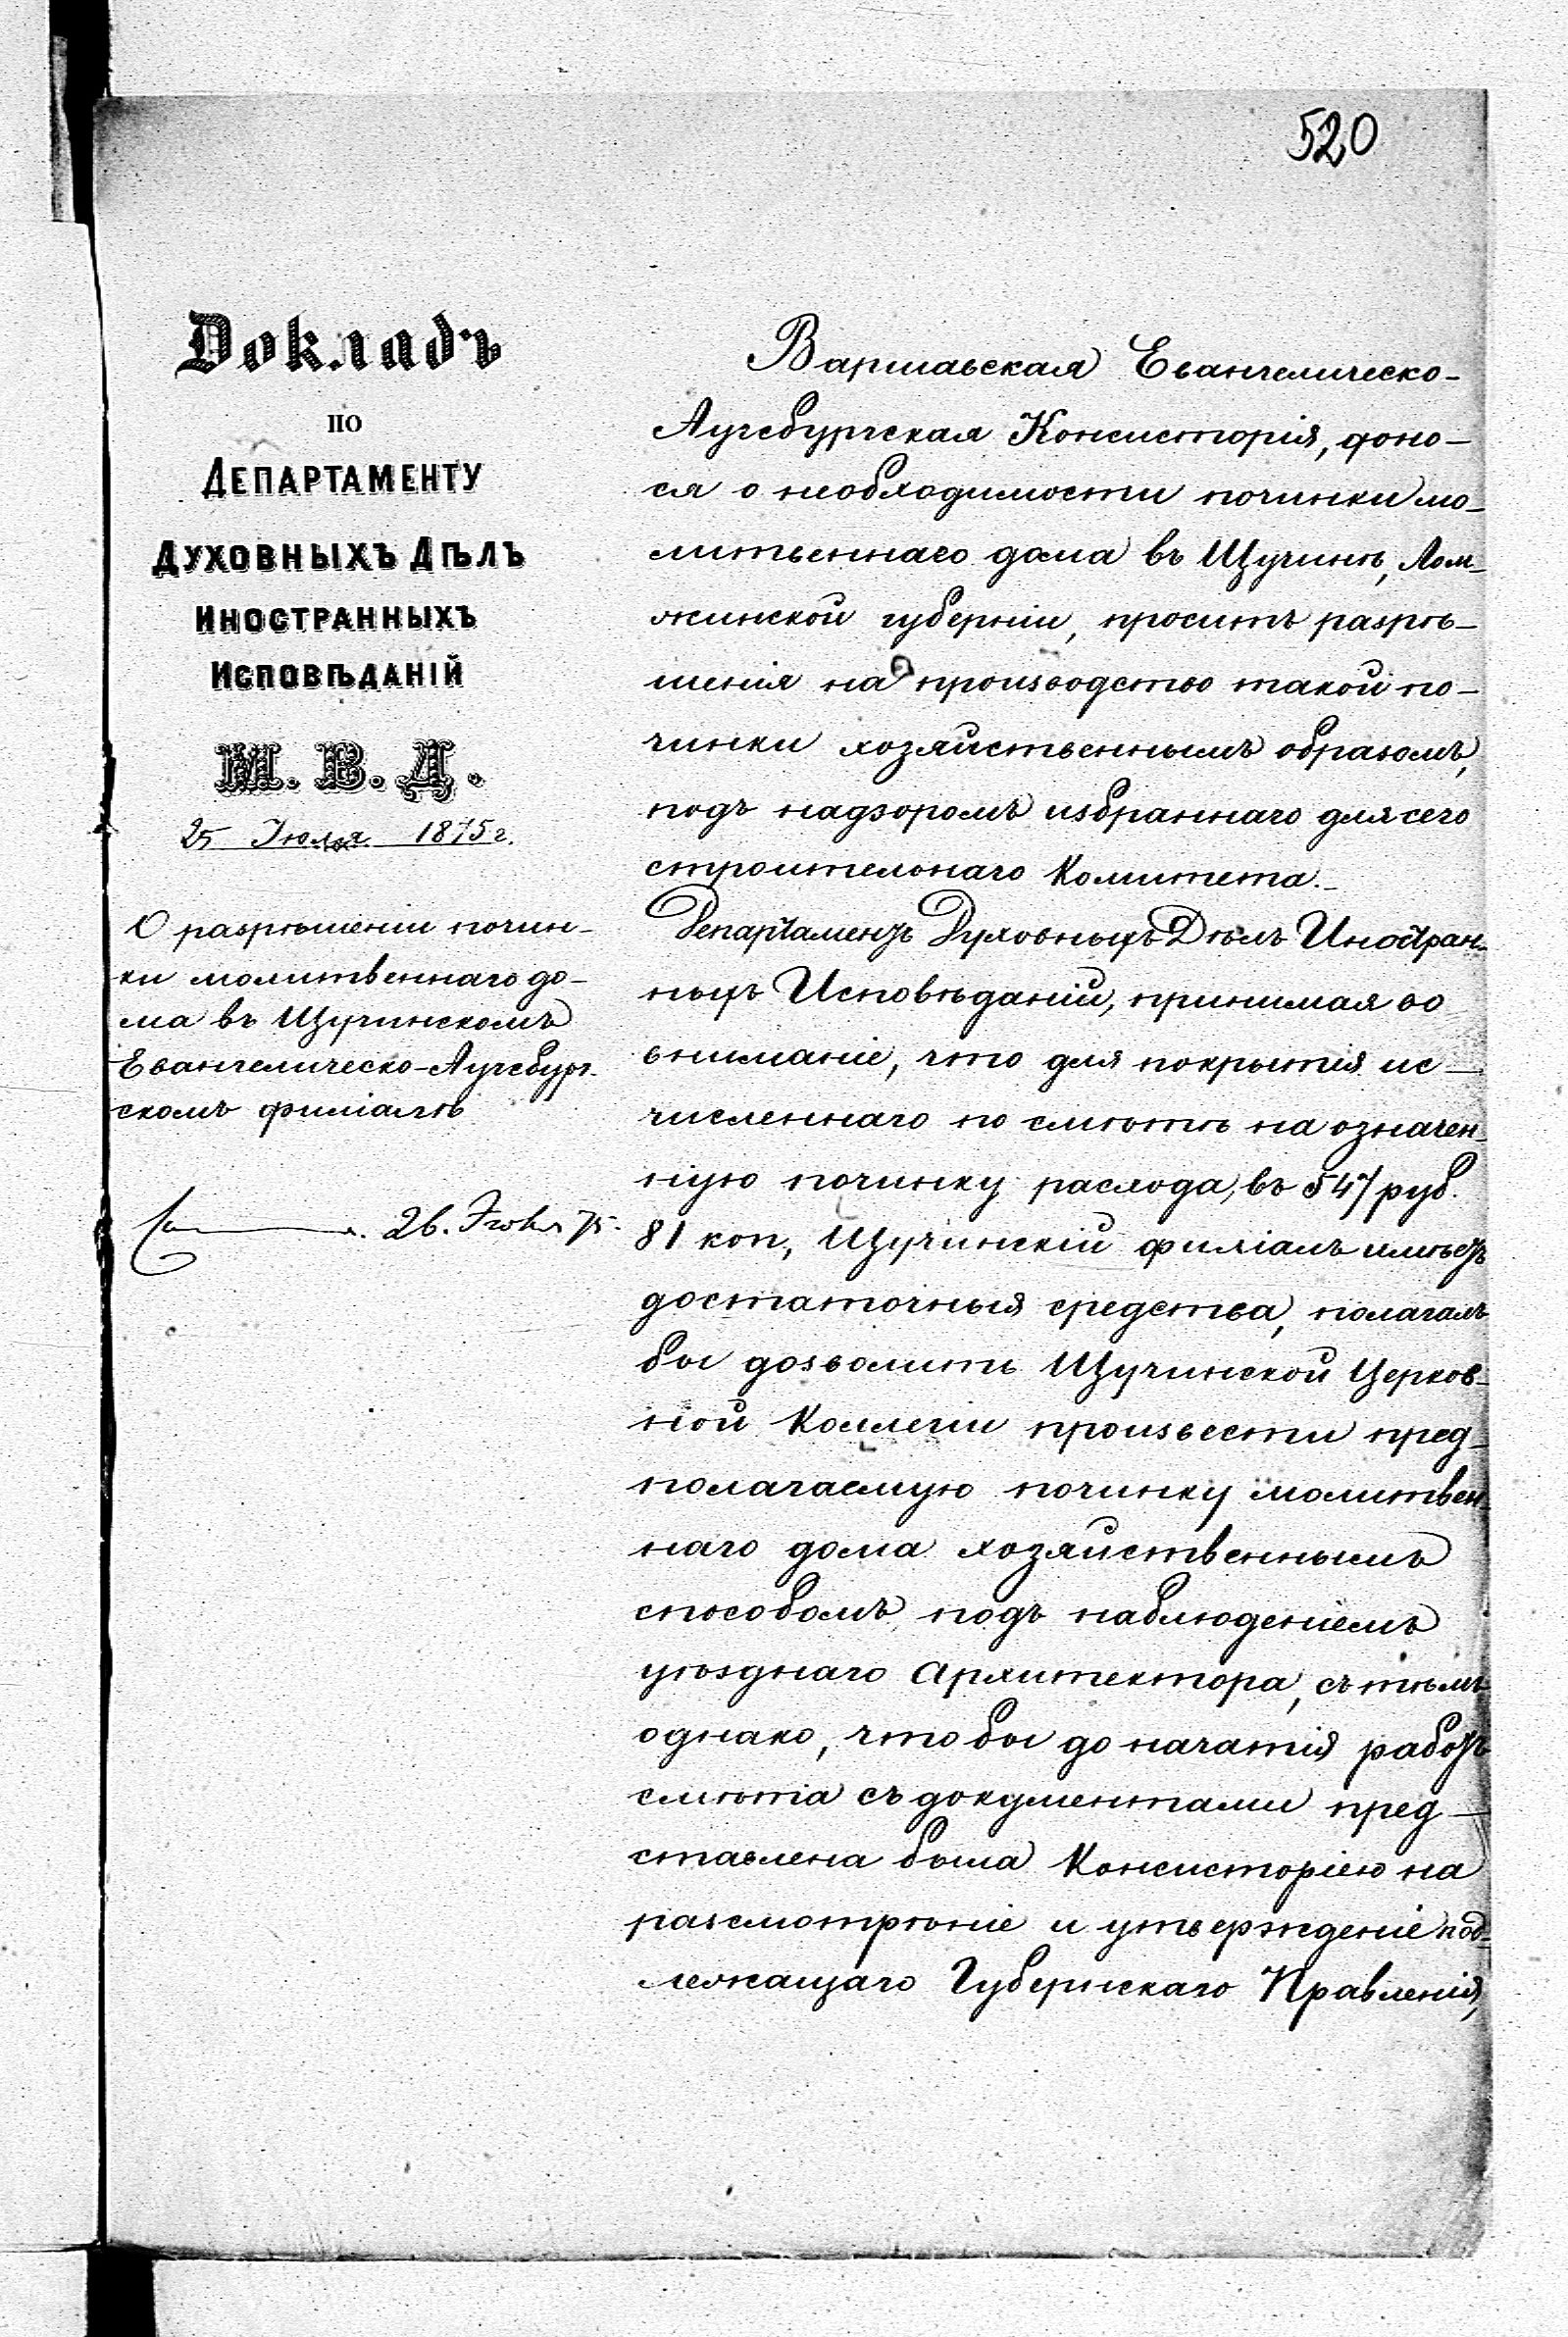 520
Докладъ
по
Департаменту
Духовныхъ Дѣлъ
Иностранныхъ
Исповѣданій
М. В. Д.
25 Іюля 1875 г.
О разрѣшеніи почин-
ки молитвеннаго до-
ма въ Щучинскомъ
Евангелическо-Аугсбург-
скомъ филіалѣ
26. Іюля 75.
Варшавская Евангелическо-
Аугсбургская Консисторія, доно-
ся о необходимости починки мо-
литвеннаго дома въ Щучинѣ, Лом-
жинской губерніи, проситъ разрѣ-
шенія на производство такой по-
чинки хозяйственнымъ образомъ,
подъ надзоромъ избраннаго для сего
строительнаго Комитета.
Департаментъ Духовныхъ Дѣлъ Иностран-
ныхъ Исповѣданій, принимая во
вниманіе, что для покрытія ис-
численнаго по смѣтѣ на означен-
ную починку расхода, въ 547 руб.
81 коп, Щучинскій филіалъ имѣетъ
достаточныя средства, полагалъ
бы дозволить Щучинской Церков-
ной Коллегіи произвести пред-
полагаемую починку молитвен-
наго дома хозяйственнымъ
способомъ, подъ наблюденіемъ
уѣзднаго Архитектора, съ тѣмъ
однако, что бы до начатія работъ
смѣта съ документами пред-
ставлена была Консисторіею на
разсмотрѣніе и утвержденіе под-
лежащаго Губернскаго Правленія,